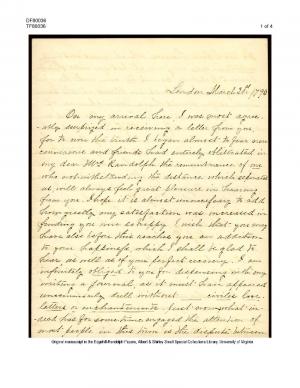 DF80036
TF80036
1 of 4
London March 2d. 1790
On my arrival here I was most agree-
ably surprized in receiving a letter from you,
for to own the truth I began almost to fear new
connexions and friends had entirely obliterated in
my dear Mrs. Randolph the remembrance of one
who notwithstanding the distance which separates
us, will always feel great pleasure in hearing
from you. I hope it is almost unnecessary to add
how greatly my satisfaction was increased in
finding you were so happy. I wish that you may
have else before this reaches you an addition
to your happiness which I shall be glad to
hear as well as of your perfect recovery. I am
infinitely obliged to you for dispensing with my
writing a journal, as it must have appeared
uncommonly dull without circles love
letters & enchantments. but now what in-
deed has for some time engaged the attention of
most people in this town is the dispute between
Original manuscript in the Edgehill-Randolph Papers, Albert & Shirley Small Special Collections Library, University of Virginia